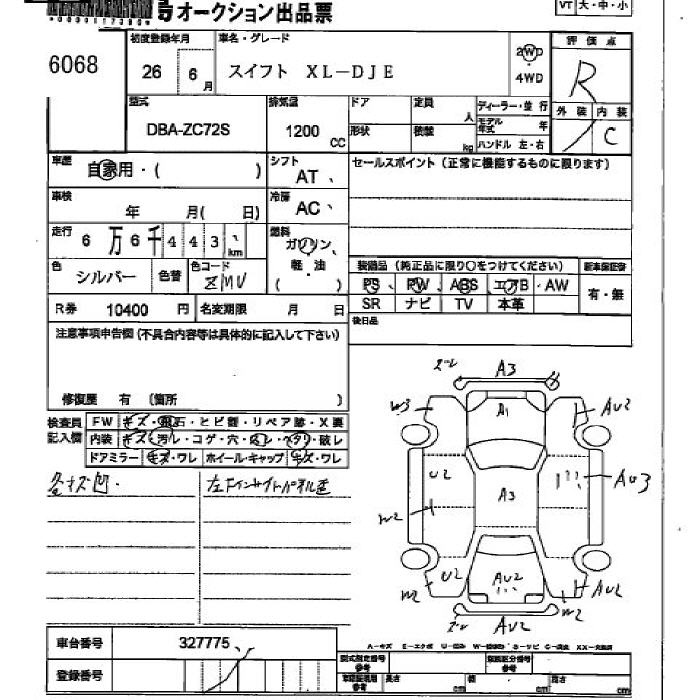 号オークション出品票
VT 大・中・小
6068
初度登録年月
車名・グレード
26 6月
スイフト XL-DJE
2WD
4WD
評価点
R
外装 内装
C
型式
DBA-ZC72S
排気量
1200 CC
ドア
定員 人
形状
積載 kg
ディーラー・並行
モデル年式 年
ハンドル 左・右
車歴
自家用・( )
シフト
AT
セールスポイント(正常に機能するものに限ります)
車検
年 月( 日)
冷房
AC
走行
6万6千443 km
燃料
ガソリン、
軽・油
( )
色
シルバー
色替
色コード
ZMU
装備品(純正品に限り○をつけてください)
PS、PW、ABS エアB・AW
SR ナビ TV 本革
新車保証書
有・無
R券 10400 円
名変期限 月 日
後日品
注意事項申告欄(不具合内容等は具体的に記入して下さい)
修復歴 有 (箇所 )
検査員
記入欄
FW キズ・飛石・ヒビ割・リペア跡・X要
内装 キズ・汚レ・コゲ・穴・ ・ ・破レ
ドアミラー キズ・ワレ ホイール・キャップ キズ・ワレ
各キズ凹.
A3
W3
A1
AU2
U2
A3
AU3
W2
U2
AU2
W2
AU2
W2
AU2
車台番号 327775
登録番号
A-キズ E-エクボ
型式指定番号
参考
類別区分番号
参考
長さ cm
幅 cm
高さ cm